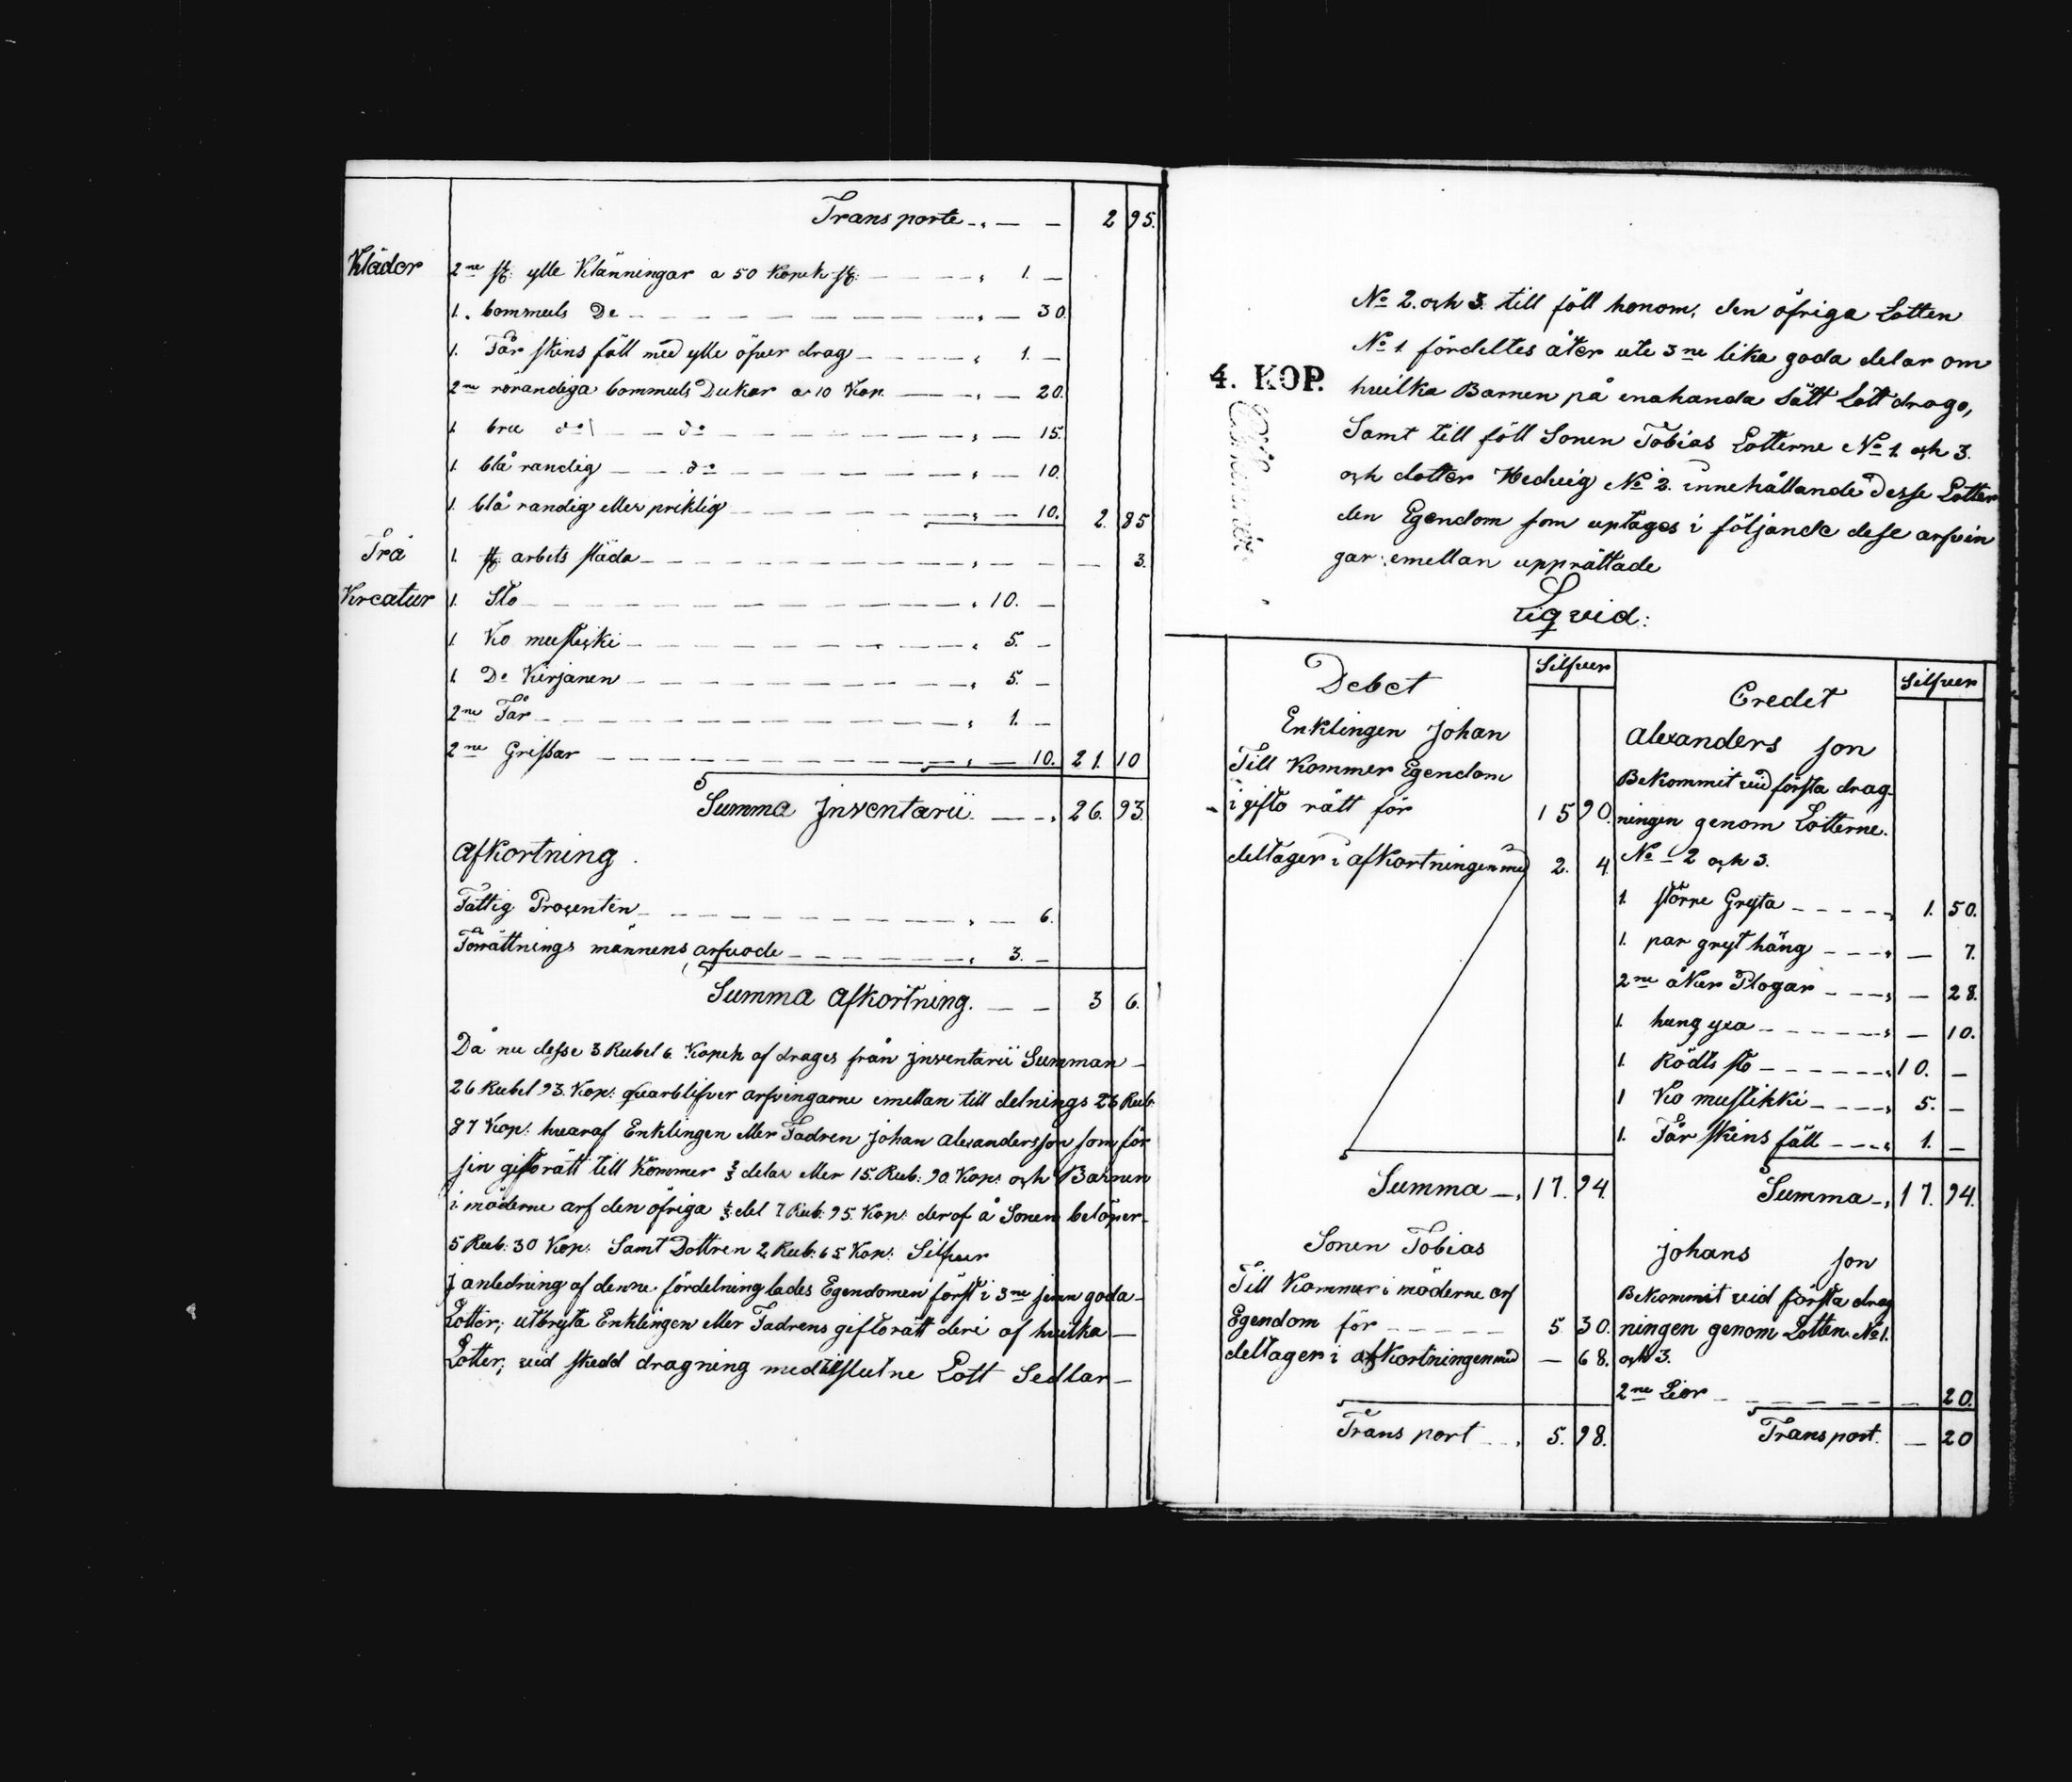 Transporte 2 95.
Kläder 2ne st: ylle Klänningar a 50 Kopek st: 1. —
1. bommuls Do — 30.
1. Får skins fäll med ylle öfver drag 1. —
2ne rörandiga bommuls Dukar a 10 Kop. — 20.
1. bru do do — 15.
1. blå randig do — 10.
1. blå randig eller priklig — 10. 2. 85
Trä 1. st: arbets släda — — — 3.
Kreatur 1. Sto 10. —
1. Ko mustikki 5. —
1. Do Kirjanen 5. —
2ne Får 1. —
2ne Grissar — 10. 21. 10
Summa Inventarii. 26. 93.
Afkortning.
Fattig Procenten — 6.
Förrättnings männens arfvode 3. —
Summa Afkortning. 3 6.
Då nu desse 3 Rubel 6. Kopek af drages från Inventarii Summan
26 Rubel 93. Kop: quarblifver arfvingarne emellan till delnings 23 Rub
87 Kop: hvaraf Enklingen eller Fadren Johan Alexandersson som för
sin giftorätt till Kommer 2/3 delar eller 15. Rub: 90. Kop: och Barnen
i möderne arf den öfriga 1/3 del 7 Rub: 95. Kop: deraf å Sonen belöper
5 Rub: 30 Kop: Samt Dottren 2 Rub: 65 Kop: Silfver
I anledning af denna fördelning lades Egendomen först i 3ne jemn goda
Lotter; utbryta Enklingen eller Fadrens giftorätt deri af hvilka
Lotter; vid skedd dragning med tillslutne Lott Sedlar
No 2. och 3. till föll honom, den öfriga Lotten
No 1. fördeltes åter ute 3ne lika goda delar om
4. KOP.
hvilka Barnen på enahanda Sätt Lott drogo,
Samt till föll Sonen Tobias Lotterne No 1. och 3.
och dotter Hedvig No 2. innehållande Desse Lotter
den Egendom som uptages i följande desse arfvin
gar: emellan upprättade
Liqvid:
Debet Silfver Credet Silfver
Enklingen Johan Alexanders son
Till Kommer Egendom Bekommit vid första drag
i gifto rätt för 15 90. ningen genom Lotterne.
deltager i afkortningen med 2. 4. No 2 och 3.
1. större Gryta 1. 50.
1. par gryt häng — 7.
2ne åker Plogar — 28.
1. hung yxa — 10.
1. Rödt sto 10. —
1 Ko mustikki 5. —
1. Får skins fäll 1. —
Summa 17. 94. Summa 17. 94.
Sonen Tobias Johans son
Till Kommer i möderne arf Bekommit vid första drag
Egendom för 5 30. ningen genom Lotten No 1.
deltager i afkortningen med — 68. och 3.
2ne Lior — 20.
Transport 5. 98. Transport. — 20